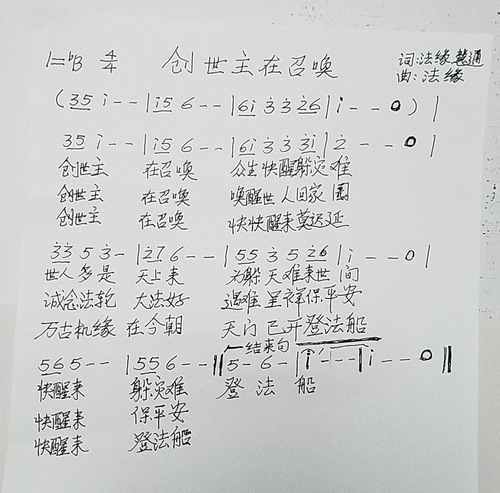 1=ᵇB 4/4 创世主在召唤 词:法缘 慧通
曲:法缘
(35 i - - | i5 6 - - | 6i 3 3 26 | i - - 0 ) |
35 i - - | i5 6 - - | 6i 3 3 3i | 2 - - 0 |
创世主 在召唤 众生快醒躲灾难
创世主 在召唤 唤醒世人回家园
创世主 在召唤 快快醒来莫迟延
33 5 3 - | 27 6 - - | 55 3 5 26 | i - - 0 |
世人多是 天上来 为躲天难来世间
诚念法轮 大法好 遇难呈祥保平安
万古机缘 在今朝 天门已开登法船
结束句
56 5 - - | 55 6 - - || 5 - 6 - | i - - - | i - - 0 ||
快醒来 躲灾难 登法船
快醒来 保平安
快醒来 登法船